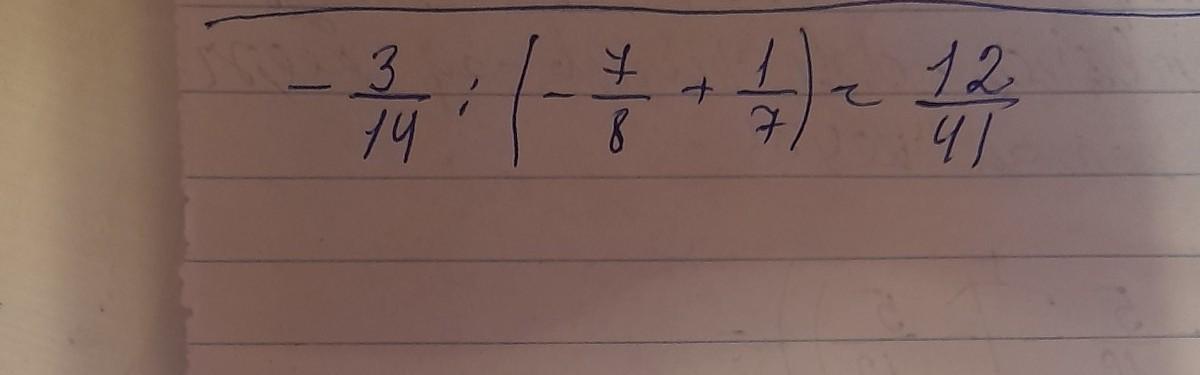 - 3/14 : (- 7/8 + 1/7) = 12/41